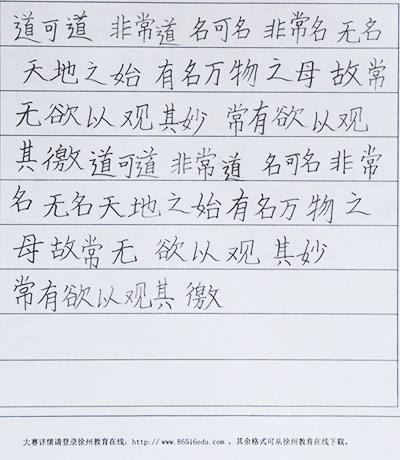 道可道 非常道 名可名 非常名 无名
天地之始 有名万物之母 故常
无欲以观其妙 常有欲以观
其徼道可道 非常道 名可名 非常
名 无名天地之始有名万物之
母故常无 欲以观 其妙
常有欲以观其 徼
大赛详情请登录徐州教育在线：http://www.86516edu.com ，其余格式可从徐州教育在线下载。